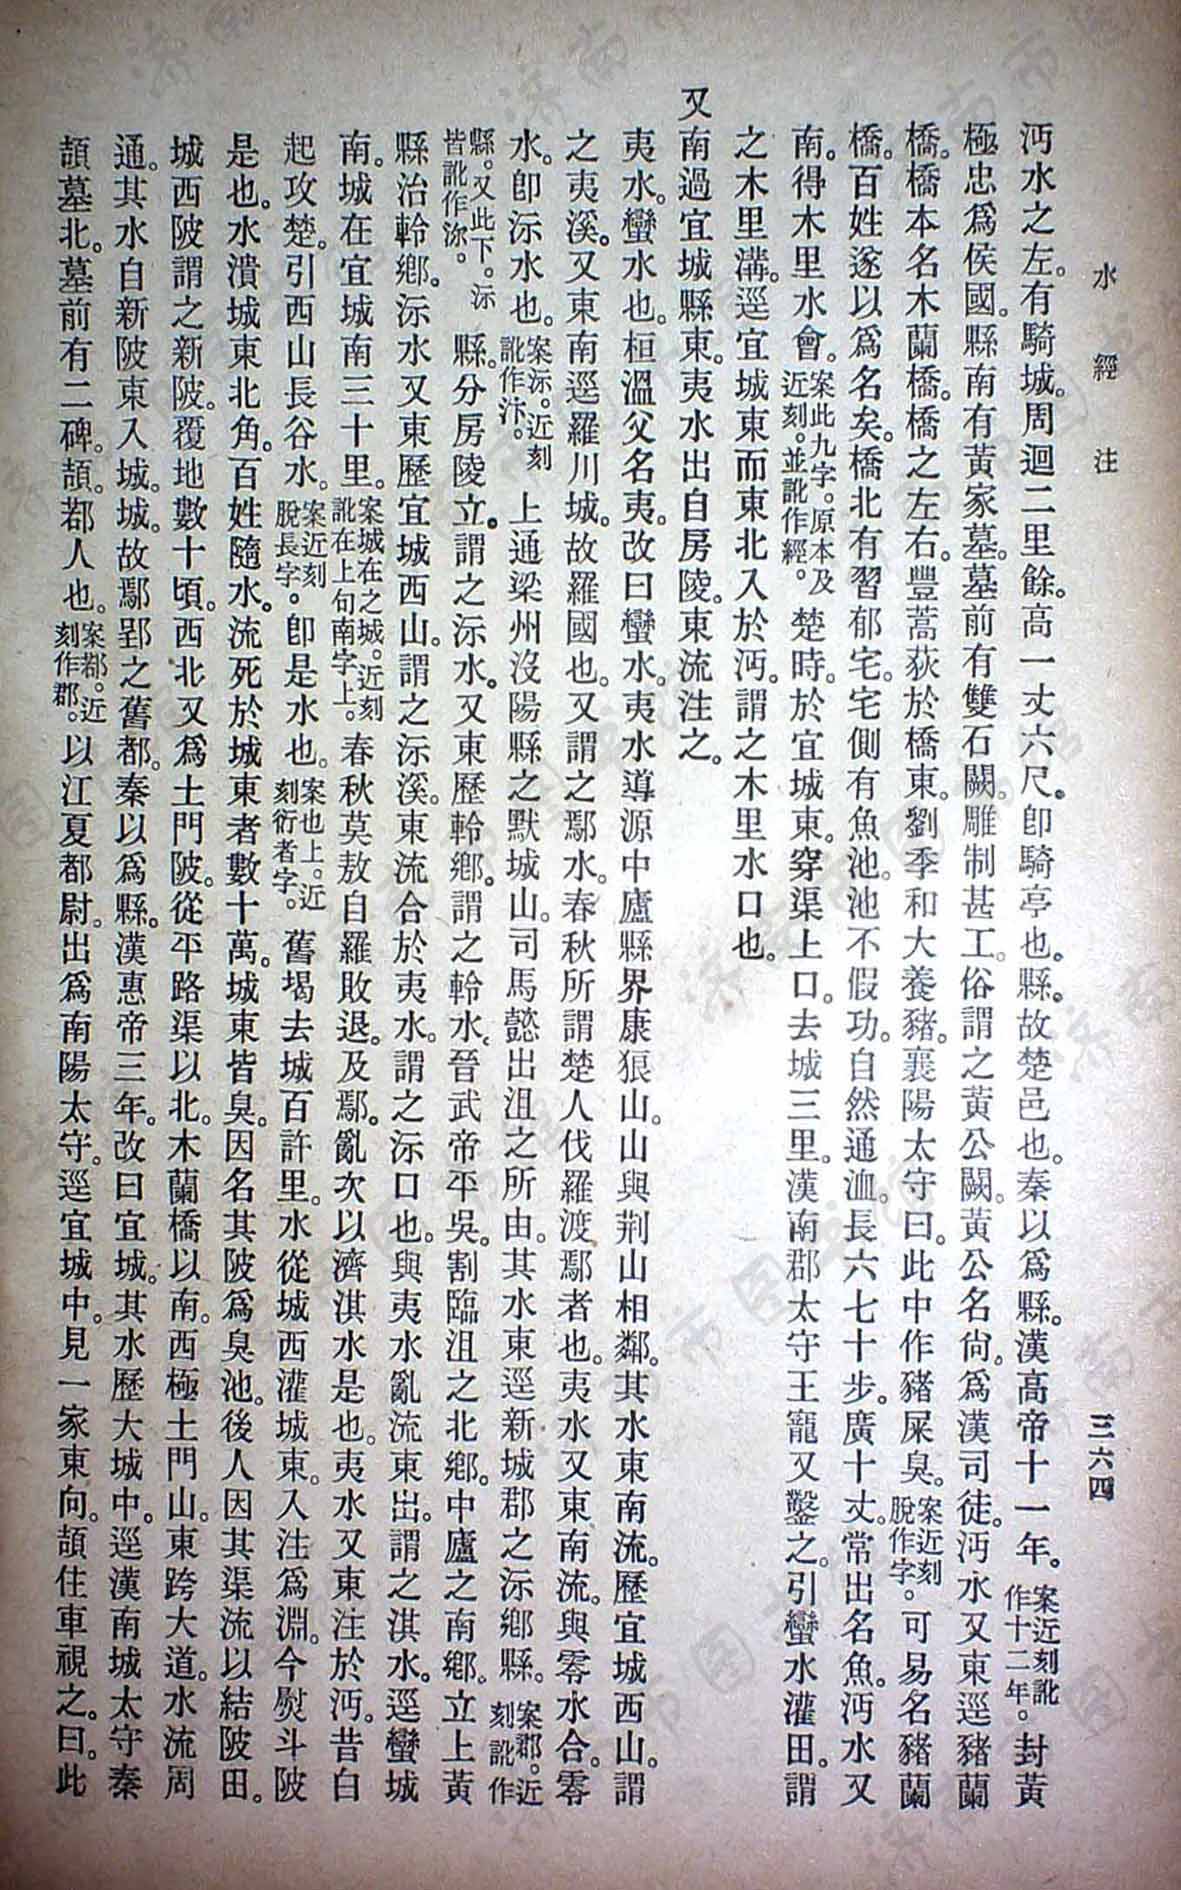 水經注
三六四
沔水之左。有騎城。周迴二里餘。高一丈六尺。卽騎亭也。縣。故楚邑也。秦以爲縣。漢高帝十一年。案近刻訛作十二年。封黃
極忠爲侯國。縣南有黃家墓。墓前有雙石闕。雕制甚工。俗謂之黃公闕。黃公名尙。爲漢司徒。沔水又東逕豬蘭
橋。橋本名木蘭橋。橋之左右。豐蒿荻於橋東。劉季和大養豬。襄陽太守曰。此中作豬屎臭。案近刻脫作字。可易名豬蘭
橋。百姓遂以爲名矣。橋北有習郁宅。宅側有魚池。池不假功。自然通洫。長六七十步。廣十丈。常出名魚。沔水又
南。得木里水會。案此九字。原本及近刻。並訛作經。楚時。於宜城東。穿渠上口。去城三里。漢南郡太守王寵又鑿之。引蠻水灌田。謂
之木里溝。逕宜城東而東北入於沔。謂之木里水口也。
又南過宜城縣東。夷水出自房陵。東流注之。
夷水。蠻水也。桓溫父名夷。改曰蠻水。夷水導源中廬縣界康狼山。山與荆山相鄰。其水東南流。歷宜城西山。謂
之夷溪。又東南逕羅川城。故羅國也。又謂之鄢水。春秋所謂楚人伐羅渡鄢者也。夷水又東南流。與零水合。零
水。卽沶水也。案沶。近刻訛作汴。上通梁州沒陽縣之默城山。司馬懿出沮之所由。其水東逕新城郡之沶鄉縣。案郡。近刻訛作
縣。又此下。沶皆訛作㳽。縣。分房陵立。謂之沶水。又東歷軨鄉。謂之軨水。晉武帝平吳。割臨沮之北鄉。中廬之南鄉。立上黃
縣治軨鄉。沶水又東歷宜城西山。謂之沶溪。東流合於夷水。謂之沶口也。與夷水亂流東出。謂之淇水。逕蠻城
南。城在宜城南三十里。案城在之城。近刻訛在上句南字上。春秋莫敖自羅敗退。及鄢。亂次以濟淇水是也。夷水又東注於沔。昔白
起攻楚。引西山長谷水。案近刻脫長字。卽是水也。案也上。近刻衍者字。舊堨去城百許里。水從城西灌城東。入注爲淵。今熨斗陂
是也。水潰城東北角。百姓隨水。流死於城東者數十萬。城東皆臭。因名其陂爲臭池。後人因其渠流以結陂田。
城西陂謂之新陂。覆地數十頃。西北又爲土門陂。從平路渠以北。木蘭橋以南。西極土門山。東跨大道。水流周
通。其水自新陂東入城。城。故鄢郢之舊都。秦以爲縣。漢惠帝三年。改曰宜城。其水歷大城中。逕漢南城太守秦
頡墓北。墓前有二碑。頡。鄀人也。案鄀。近刻作郡。以江夏都尉。出爲南陽太守。逕宜城中。見一家東向。頡住車視之。曰。此